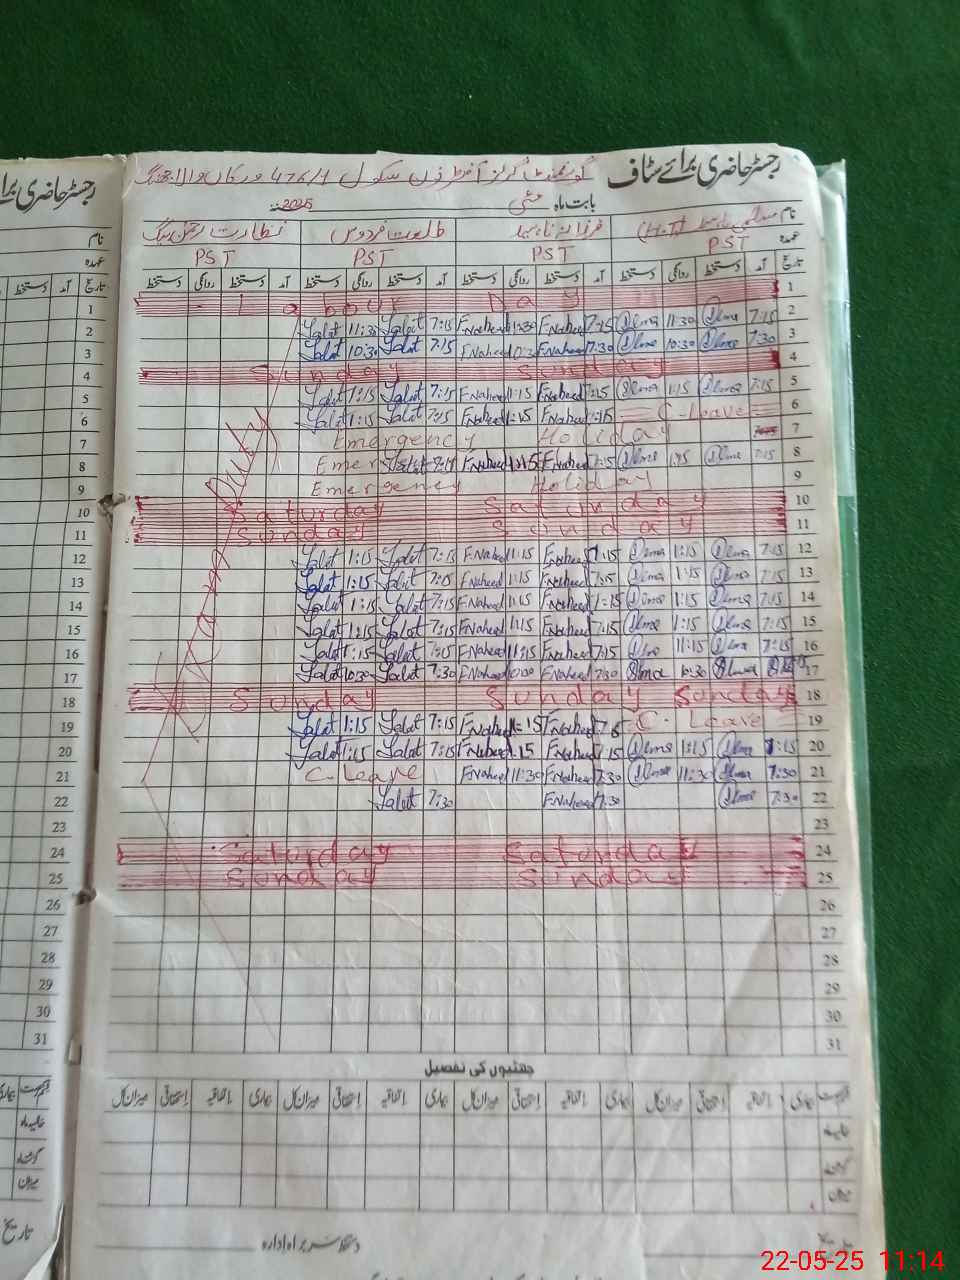 رجسٹر حاضری برائے سٹاف
گورنمنٹ گرلز آفٹر نون سکول 476/1
بابت ماہ مئی 2025ء
نام فرزانہ ناہید طلعت فردوس
عہدہ PST PST PST PST
تاریخ آمد دستخط روانگی دستخط آمد دستخط روانگی دستخط آمد دستخط روانگی دستخط آمد دستخط روانگی دستخط
1 Labour Day
2 7:15 Ilma 11:30 Ilma 7:15 F.Naheed 11:30 F.Naheed 7:15 Talat 11:30 Talat
3 7:30 Ilma 10:30 Ilma 7:30 F.Naheed 10:30 F.Naheed 7:15 Talat 10:30 Talat
4 Sunday Sunday
5 7:15 Ilma 1:15 Ilma 7:15 F.Naheed 1:15 F.Naheed 7:15 Talat 1:15 Talat
6 C-Leave 7:15 F.Naheed 1:15 F.Naheed 7:15 Talat 1:15 Talat
7 Emergency Holiday
8 7:15 Ilma 1:15 Ilma 7:15 F.Naheed 1:15 F.Naheed 7:15 Talat
9 Emergency Holiday
10 Saturday Saturday
11 Sunday Sunday
12 7:15 Ilma 1:15 Ilma 7:15 F.Naheed 1:15 F.Naheed 7:15 Talat 1:15 Talat
13 7:15 Ilma 1:15 Ilma 7:15 F.Naheed 1:15 F.Naheed 7:15 Talat 1:15 Talat
14 7:15 Ilma 1:15 Ilma 1:15 F.Naheed 1:15 F.Naheed 7:15 Talat 1:15 Talat
15 7:15 Ilma 1:15 Ilma 7:15 F.Naheed 1:15 F.Naheed 7:15 Talat 1:15 Talat
16 7:15 Ilma 11:15 Ilma 7:15 F.Naheed 11:15 F.Naheed 7:15 Talat 1:15 Talat
17 Ilma 10:30 Ilma 7:30 F.Naheed 10:30 F.Naheed 7:30 Talat 10:30 Talat
18 Sunday Sunday Sunday
19 C-Leave F.Naheed F.Naheed 7:15 Talat 1:15 Talat
20 7:15 Ilma 1:15 Ilma 7:15 F.Naheed 1:15 F.Naheed 7:15 Talat 1:15 Talat
21 7:30 Ilma 11:30 Ilma 7:30 F.Naheed 11:30 F.Naheed C-Leave
22 7:30 Ilma 7:30 F.Naheed 7:30 Talat
23
24 Saturday Saturday
25 Sunday Sunday
26
27
28
29
30
31
Duty
چھٹیوں کی تفصیل
بیماری اتفاقیہ استحقاقی میزان کل بیماری اتفاقیہ استحقاقی میزان کل بیماری اتفاقیہ استحقاقی میزان کل بیماری اتفاقیہ استحقاقی میزان کل
دستخط سربراہ ادارہ
رجسٹر حاضری برائے
نام
عہدہ
تاریخ آمد دستخط
1
2
3
4
5
6
7
8
9
10
11
12
13
14
15
16
17
18
19
20
21
22
23
24
25
26
27
28
29
30
31
تاریخ
22-05-25 11:14